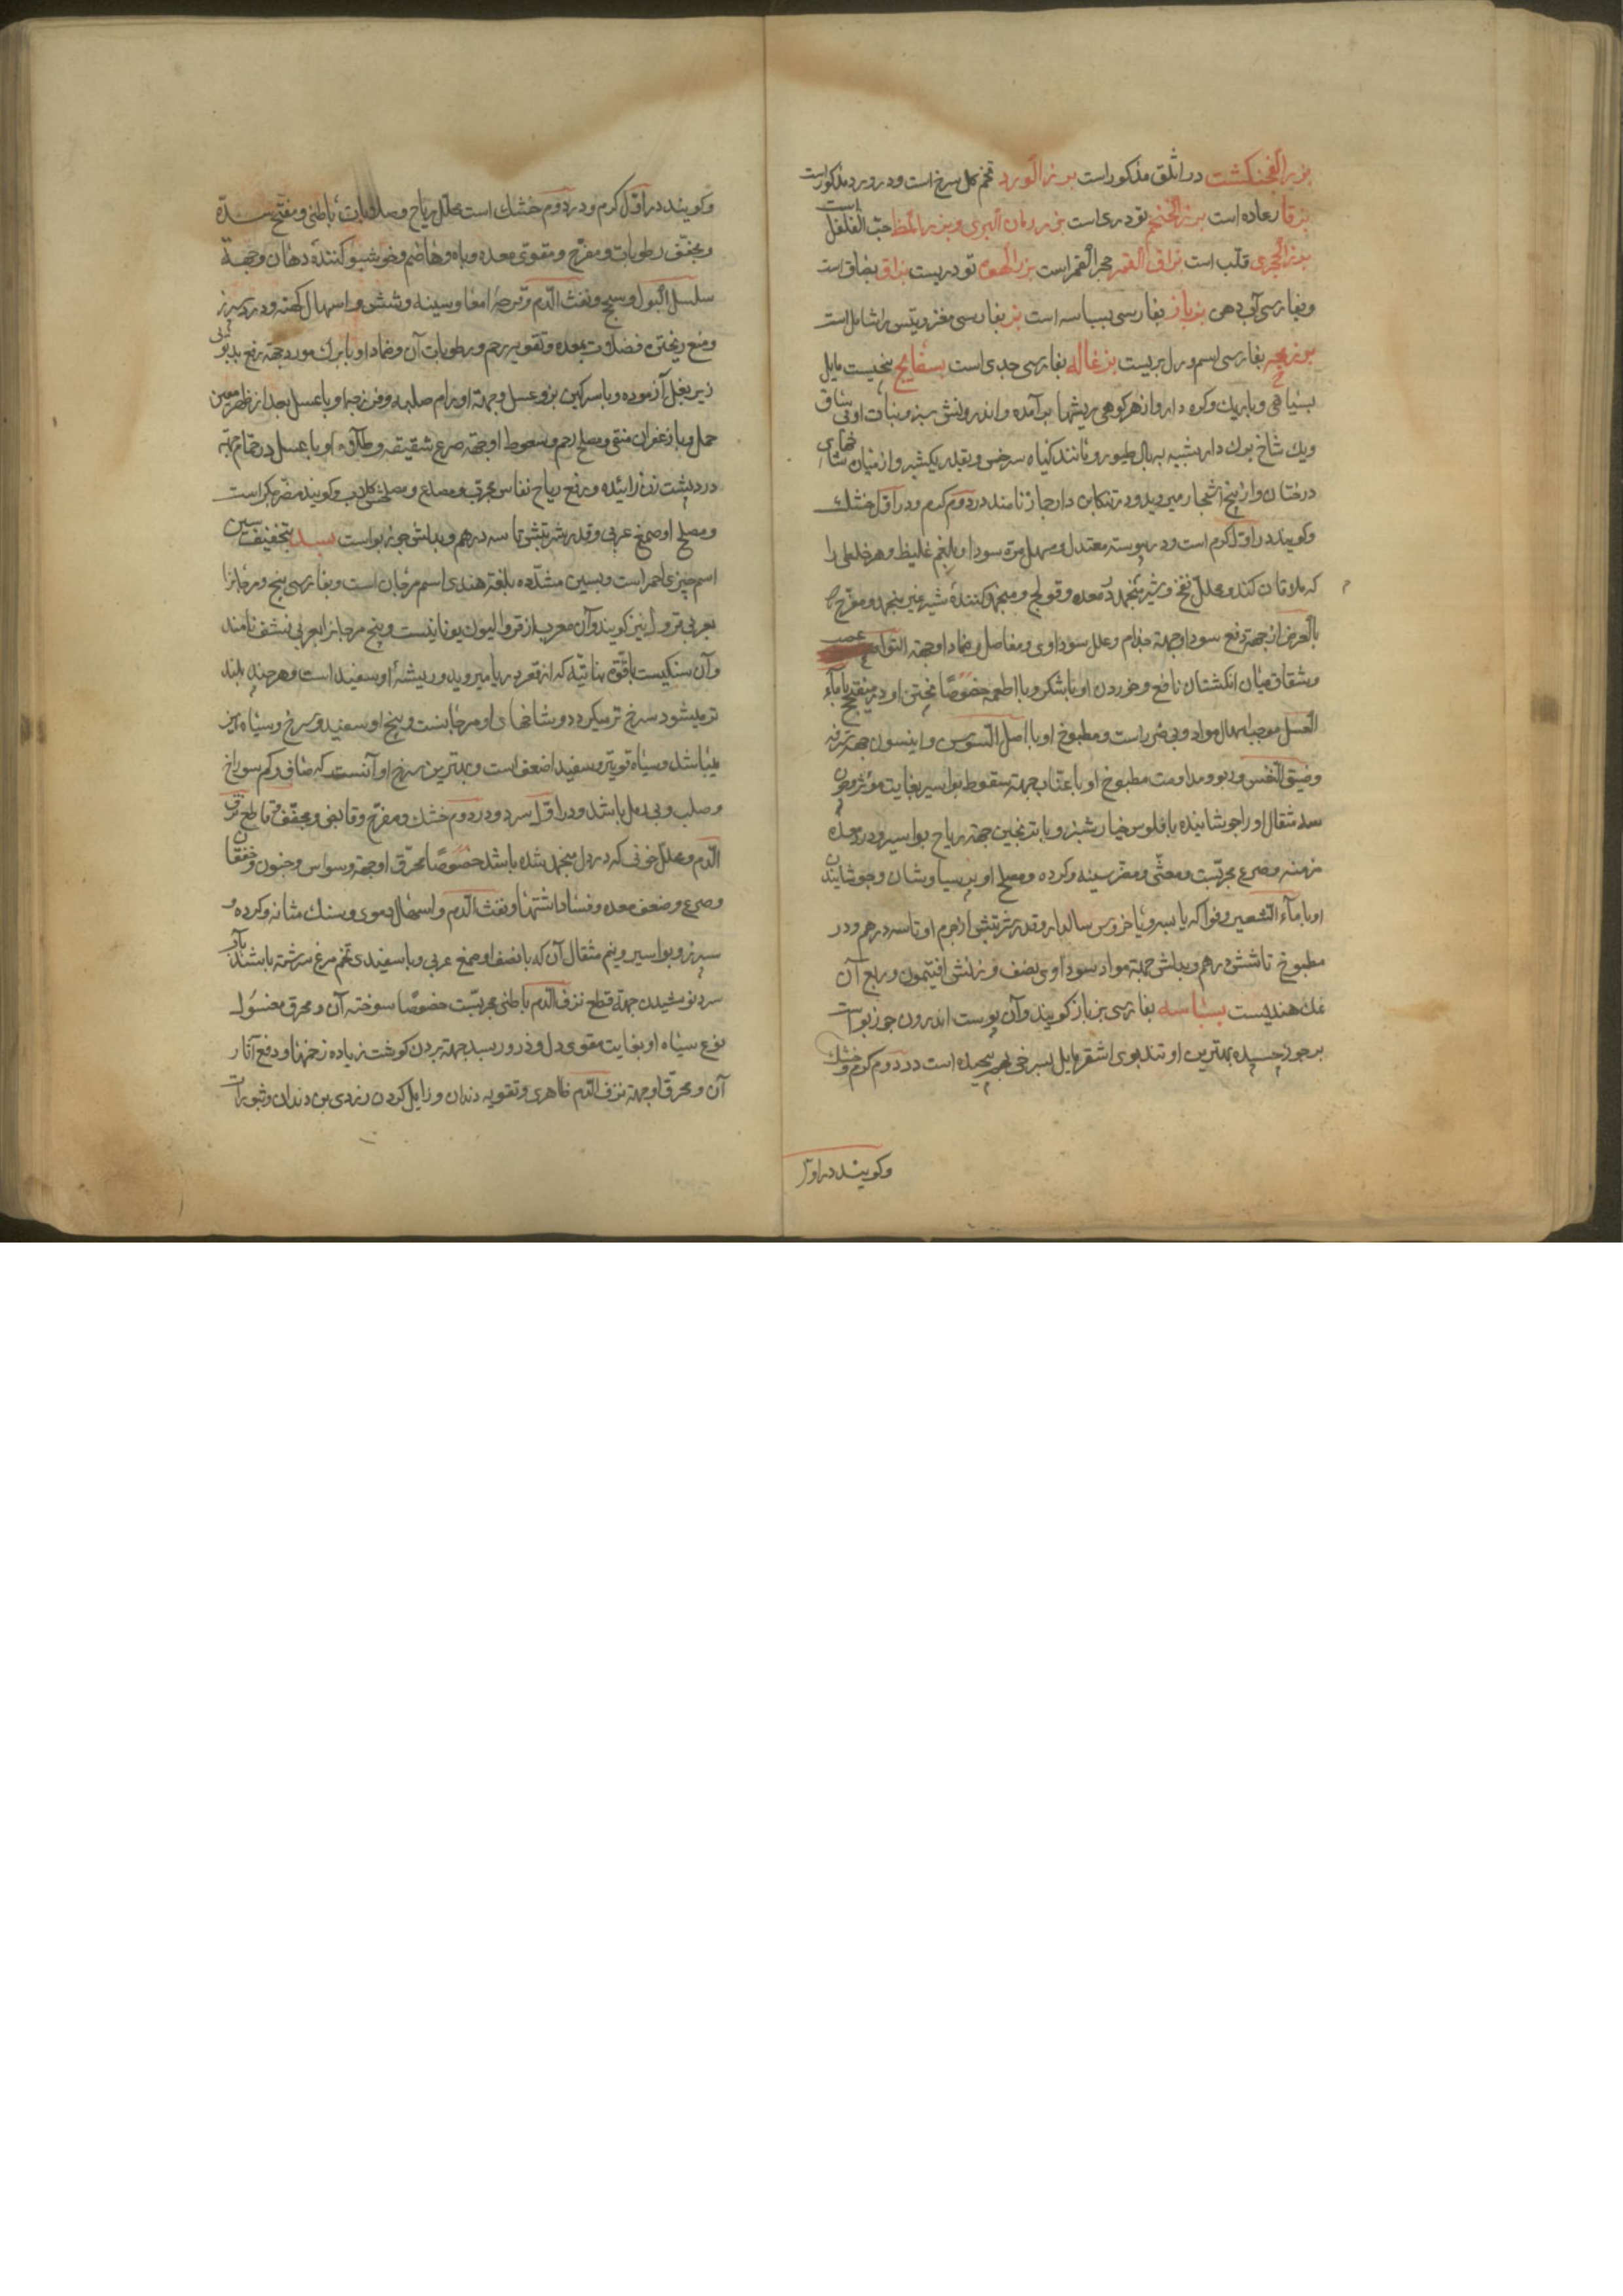 بزر الفنجنکشت در اثلق مذکور است بزر الورد تخم کل سرخ است و در ورد مذکور است
بزقا رعاده است بزر الخمخم تودری است بزر رمان البری و بزر المظ حب القلقل است
بزر الحجری قلب است بزاق القمر حجر القمر است بزر الهوه تودریست بزاق بصاق است
و بفارسی آب دهن بزباز بفارسی بسباسه است بز بفارسی معز و تیس را شاملست
بزمجه بفارسی اسم ورل بریست بزغاله بفارسی جدی است بسفایج بیخیست مایل
بسیاهی و باریک و کره دار و از هر کرهی ریشها بر آمده و اندرونش سبز و نبات او بی ساق
و یک شاخ بوک دار شبیه ببال طیور و مانند کیاه سرخس و بقدر یکشبر و از میان شاخهای
درختان و از بیخ اشجار میروید و در تنکابن دار جاز نامند در دوم کرم و در اول خشک
و کویند در اول کرم است و در یبوست معتدل و مسهل مرة سودا و بلغم غلیظ و هر خلطی را
که ملاقات کند و محلل نفخ و شیر منجمد در معده و قولنج و منجمد کننده شیر غیر منجمد و مفرح
بالعرض از جهة دفع سودا و جهة جذام و علل سوداوی و مفاصل و ضماد او جهة التوای عصب
و شقاق میان انکشتان نافع و خوردن او با شکر و با اطعمه خصوصا پختن او در با مآء
العسل موجب اسهال مواد و بی ضرر است و مطبوخ او با اصل السوس و انیسون جهة سرفه
و ضیق النفس و ربو و مداومت مطبوخ او با عناب جهة سقوط بواسیر بغایت مؤثر و چون
سه مثقال او را جوشانیده با فلوس خیار شنبر و با ترنجبین جهة ریاح بواسیر و درد معده
مزمنه و صرع مجربست و مغثی و مضر سینه و کرده و مصلح او پرسیاوشان و جوشانیدن
او با مآء الشعیر و فواکه یا بسر و یا خروس سالدار و قدر شربتش از جرم او تا سه درهم و در
مطبوخ تا شش درهم و بدلش جهة مواد سوداوی نصف وزنش افتیمون و ربع آن
نمک هندیست بسباسه بفارسی بزباز کویند و آن پوست اندرون جوز بواست
بر جوز چسپیده بهترین او تند بوی اشقر مایل بسرخی بهم پیچیده است در دوم کرم و خشک
و کویند در اول
و کویند در اول کرم و در دوم خشک است محلل ریاح و صلابات باطنی و مفتح سده
و مجفف رطوبات و مفرح و مقوی معده و باه و هاضم و خوشبو کننده دهان و جهة
سلسل البول و سحج و نفث الدم و قرحه امعا و سینه و شش و اسهال کهنه و درد سپرز
و منع ریختن فضلات بمعده و تقویه رحم و رطوبات آن و ضماد او با برک مورد جهة رفع بدبویی
زیر بغل آزموده و با سرکین بز و عسل و جهة اورام صلبه و فرزجه او با عسل بعد از طهر معین
حمل و با زعفران منقی و مصلح رحم و سعوط او جهة صرع شقیقه و طلاء او با عسل در حمام جهة
درد پشت زن زاینده و رفع ریاح نفاس مجرب و مصدع و مصلحش کلاب و کویند مضر جکر است
و مصلح او صمغ عربی و قدر شربتش تا سه درهم و بدلش جوز بواست بسد بتخفیف سین
اسم چیزی احمر است و بسین مشدده بلغة هندی اسم مرجان است و بفارسی بیخ مرجانرا
بعربی قرول نیز کویند و آن معرب از قروالیون یونانیست و بیخ مرجانرا بعربی نشف نامند
و آن سنکیست با قوة نباتیه که از قعر دریا میروید و ریشه او سفید است و هر چند بلند
تر میشود سرخ تر میکردد و شاخهای او مرجانست و بیخ او سفید و سرخ و سیاه نیز
میباشد و سیاه قویتر و سفید اضعف است و بهترین سرخ او آنست که صاف و کم سوراخ
و صلب و بی رمل باشد و در اول سرد و در دوم خشک و مفرح و قابض و مجفف و قاطع نزف
الدم و محلل خونی که در دل منجمد شده باشد خصوصا محرق او جهة وسواس و جنون و خفقان
و صرع و ضعف معده و فساد اشتها و نفث الدم و اسهال دموی و سنک مثانه و کرده و
سپرز و بواسیر و نیم مثقال آن که با نصف او صمغ عربی و با سفیدی تخم مرغ سرشته باشند با آب
سرد نوشیدن جهة قطع نزف الدم باطنی مجربست خصوصا سوخته آن و محرق مغسول
نوع سیاه او بغایت مقوی دل و ذرور بسد جهة بردن کوشت زیاده زخمها و دفع آثار
آن و محرق او جهة نزف الدم ظاهری و تقویه دندان و زایل کردن زردی بن دندان و بثورات